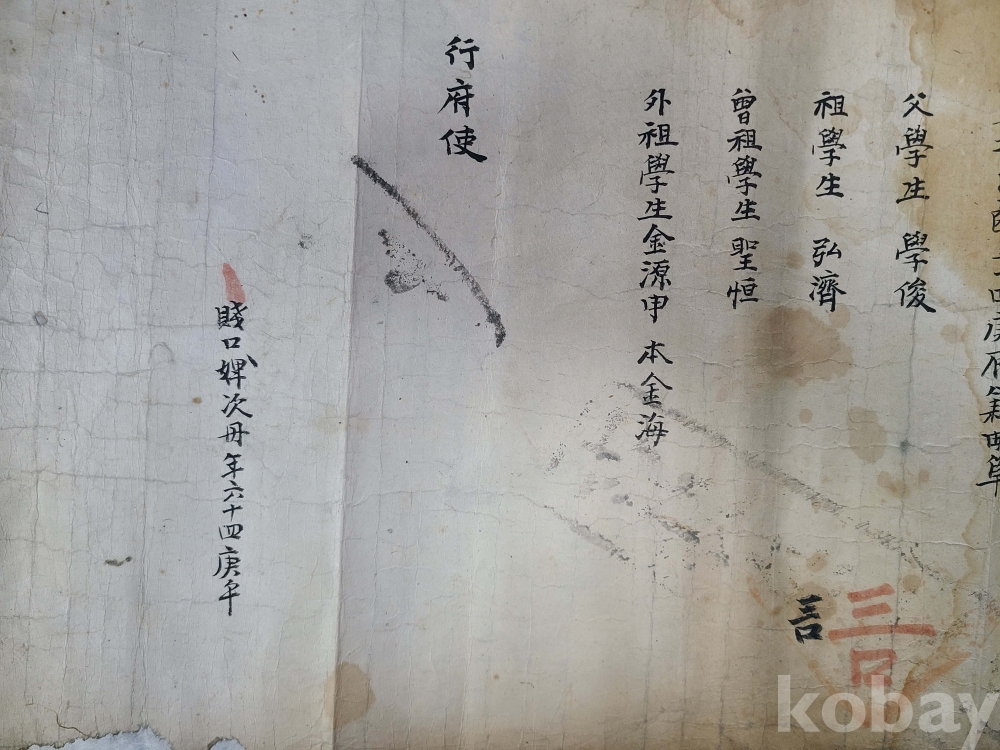 父學生 學俊
祖學生 弘濟
曾祖學生 聖恒
外祖學生金源申 本金海
行府使
賤口婢次丹年六十四庚午
kobay